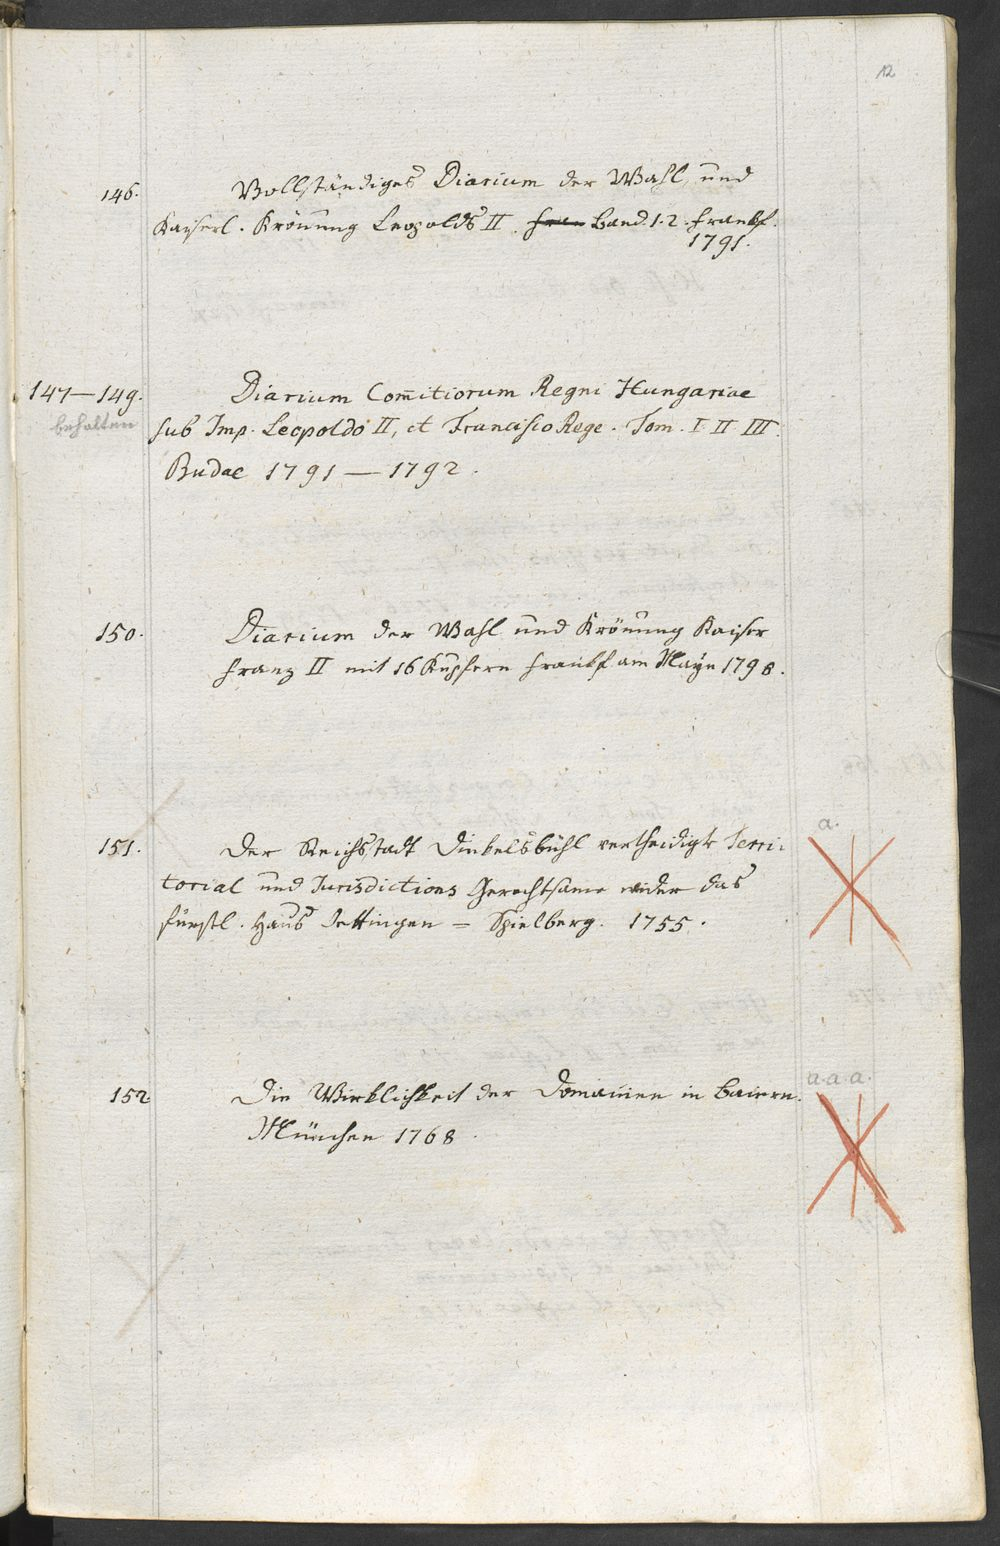 12
146. Vollständiges Diarium der Wahl und
Kaiserl. Krönung Leopolds II. Fran Band 1. 2. Frankf.
1791.
147—149. Diarium Com̄itiorum Regni Hungariae
behalten sub Imp. Leopoldo II, et Francisco Rege. Tom. I II III.
Budae 1791 — 1792.
150. Diarium der Wahl und Krönung Kaiser
Franz II mit 16 Kupfern Frankf am Mayn 1798.
a.
151. Der Reichstadt Dinkelsbühl vertheidigte Terri=
torial und Jurisdictions Gerechtsame wider das
fürstl. Haus Oettingen = Spielberg. 1755.
a. a. a.
152 Die Wirklichkeit der Domainen in Baiern.
München 1768.